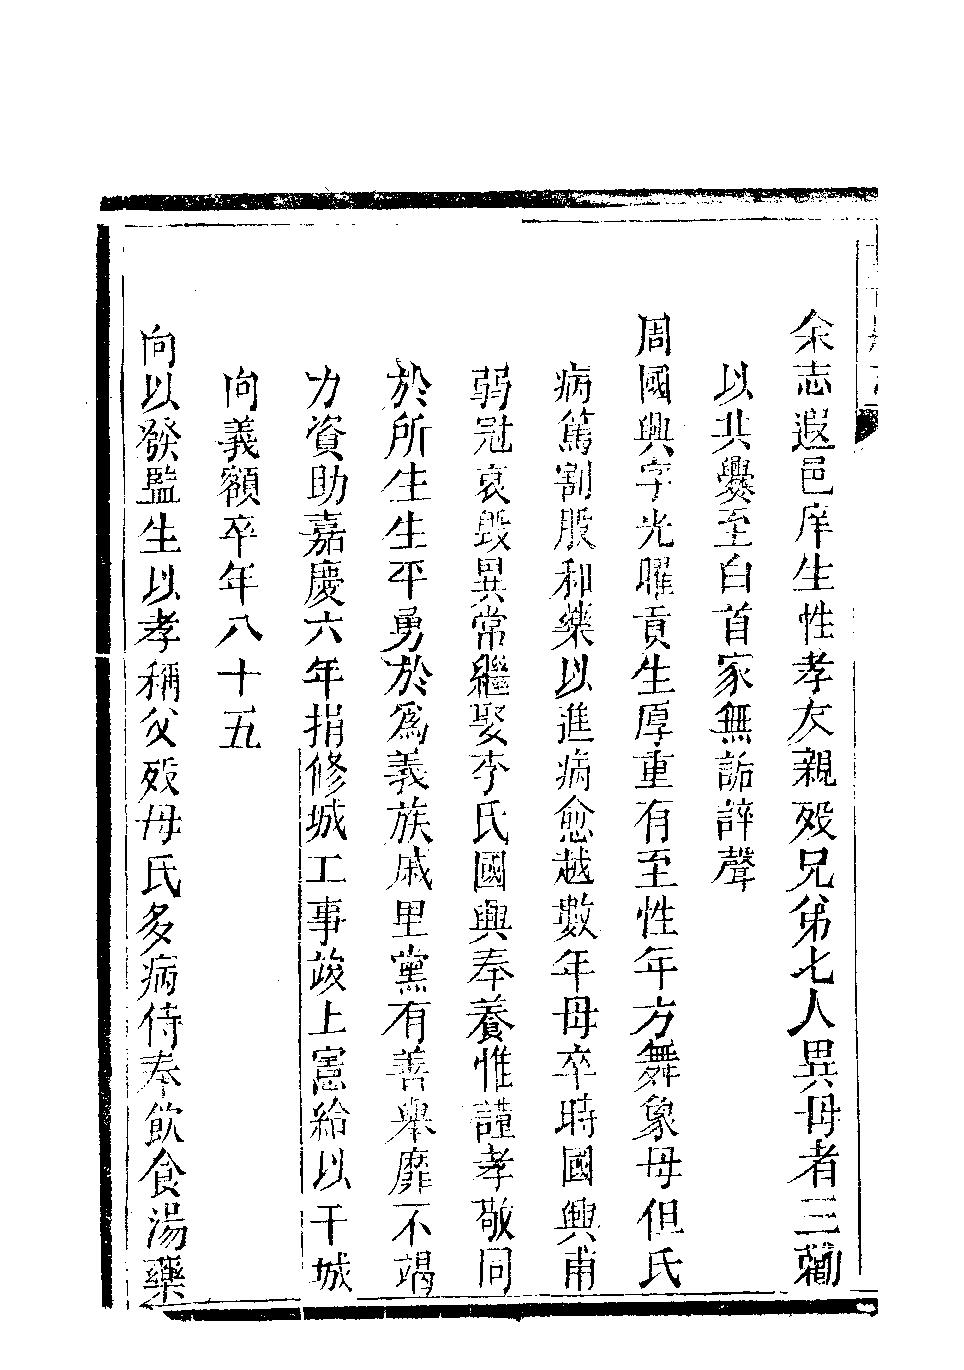 余志遐邑庠生性孝友親歿兄弟七人異母者三勷
以共爨至白首家無詬誶聲
周國興字光曜貢生厚重有至性年方舞象母但氏
病篤割股和藥以進病愈越數年母卒時國興甫
弱冠哀毀異常繼娶李氏國興奉養惟謹孝敬同
於所生生平勇於為義族戚里黨有善舉靡不竭
力資助嘉慶六年捐修城工事竣上憲給以干城
向義額卒年八十五
向以發監生以孝稱父歿母氏多病侍奉飲食湯藥